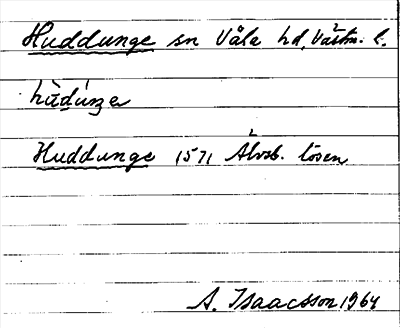 Huddunge sn Våla hd, Västm. l.
hùdúnga
Huddunge 1571 Älvsb. lösen
A. Isaacsson 1964